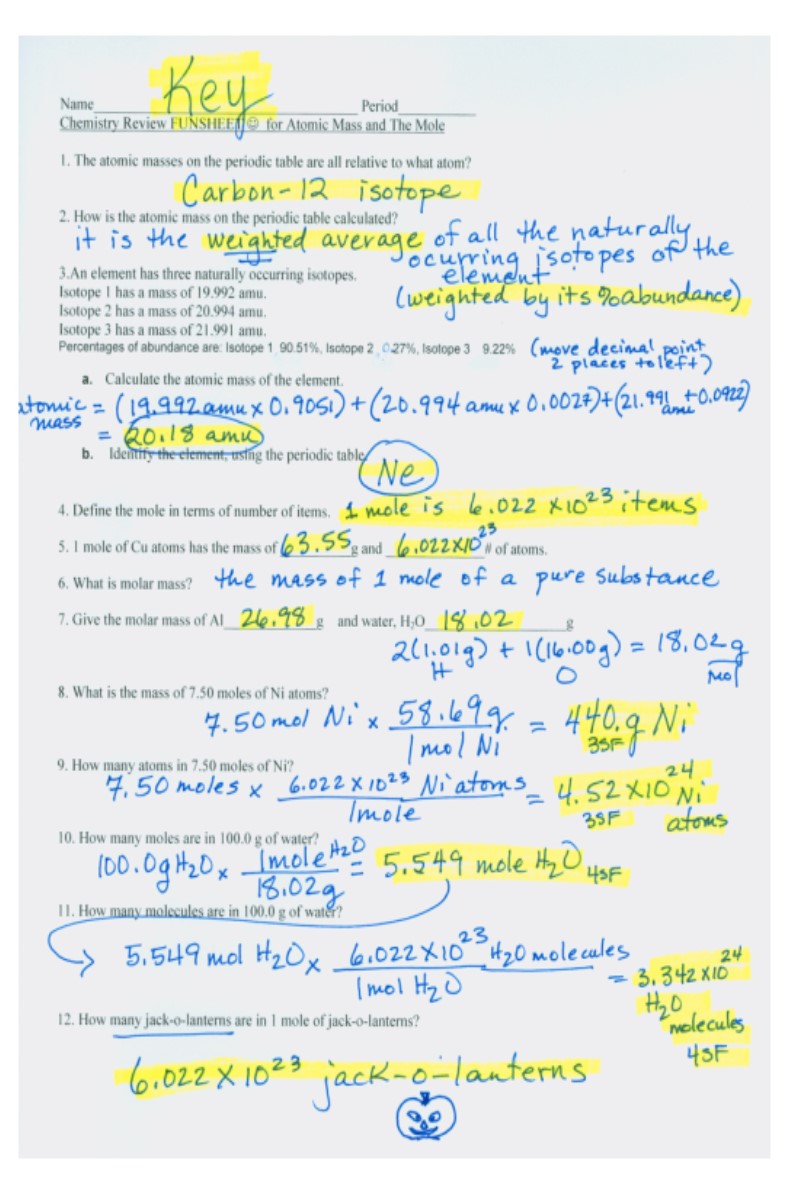 Key
Name Period
Chemistry Review FUNSHEET☺ for Atomic Mass and The Mole
1. The atomic masses on the periodic table are all relative to what atom?
Carbon-12 isotope
2. How is the atomic mass on the periodic table calculated?
it is the weighted average of all the naturally
ocurring isotopes of the
element
(weighted by its % abundance)
3.An element has three naturally occurring isotopes.
Isotope 1 has a mass of 19.992 amu.
Isotope 2 has a mass of 20.994 amu.
Isotope 3 has a mass of 21.991 amu.
Percentages of abundance are: Isotope 1 90.51%, Isotope 2 0.27%, Isotope 3 9.22% (move decimal point
2 places to left)
a. Calculate the atomic mass of the element.
atomic mass = (19.992 amu x 0.9051) + (20.994 amu x 0.0027) + (21.991 amu + 0.0922)
= 20.18 amu
b. Identify the element, using the periodic table.
Ne
4. Define the mole in terms of number of items. 1 mole is 6.022 x 10²³ items
5. 1 mole of Cu atoms has the mass of 63.55 g and 6.022x10²³ # of atoms.
6. What is molar mass? the mass of 1 mole of a pure substance
7. Give the molar mass of Al 26.98 g and water, H₂O 18.02 g
2(1.01g) + 1(16.00g) = 18.02 g/mol
H O
8. What is the mass of 7.50 moles of Ni atoms?
7.50 mol Ni x 58.69g = 440. g Ni
1 mol Ni 3SF
9. How many atoms in 7.50 moles of Ni?
7.50 moles x 6.022 x 10²³ Ni atoms = 4.52 x 10²⁴ Ni
1 mole 3SF atoms
10. How many moles are in 100.0 g of water?
100.0g H₂O x 1 mole H₂O = 5.549 mole H₂O 4SF
18.02g
11. How many molecules are in 100.0 g of water?
5.549 mol H₂O x 6.022 x 10²³ H₂O molecules = 3.342 x 10²⁴
1 mol H₂O H₂O
molecules
4SF
12. How many jack-o-lanterns are in 1 mole of jack-o-lanterns?
6.022 x 10²³ jack-o-lanterns